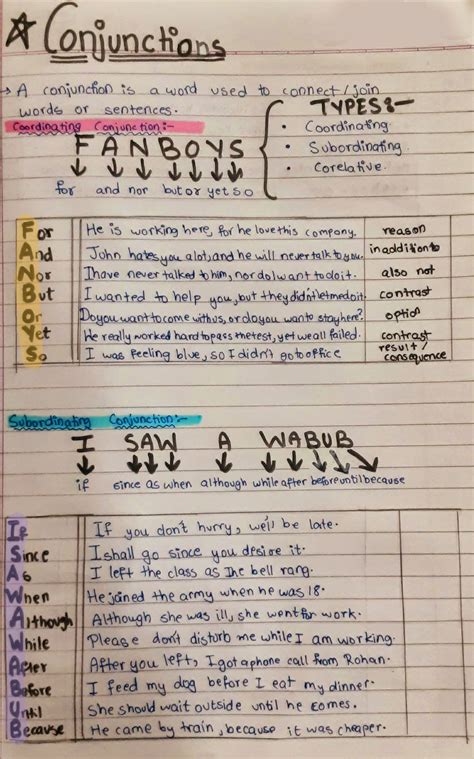 ☆ Conjunctions
→ A conjunction is a word used to connect/join
words or sentences.
TYPES:-
• Coordinating
• Subordinating
• Corelative.
Coordinating Conjunction:-
FANBOYS
for and nor but or yet so
For He is working here, for he love this company. reason
And John hates you alot, and he will never talk to you. in addition to
Nor I have never talked to him, nor do I want to do it. also not
But I wanted to help you, but they didn't let me do it. contrast
Or Do you want to come with us, or do you want to stay here? option
Yet He really worked hard to pass the test, yet we all failed. contrast
So I was feeling blue, so I didn't go to office result / consequence
Subordinating Conjunction:-
I SAW A WABUB
if since as when although while after before until because
If If you don't hurry, we'll be late.
Since I shall go since you desire it.
As I left the class as the bell rang.
When He joined the army when he was 18.
Although Although she was ill, she went for work.
While Please don't disturb me while I am working.
After After you left, I got a phone call from Rohan.
Before I feed my dog before I eat my dinner.
Until She should wait outside until he comes.
Because He came by train, because it was cheaper.